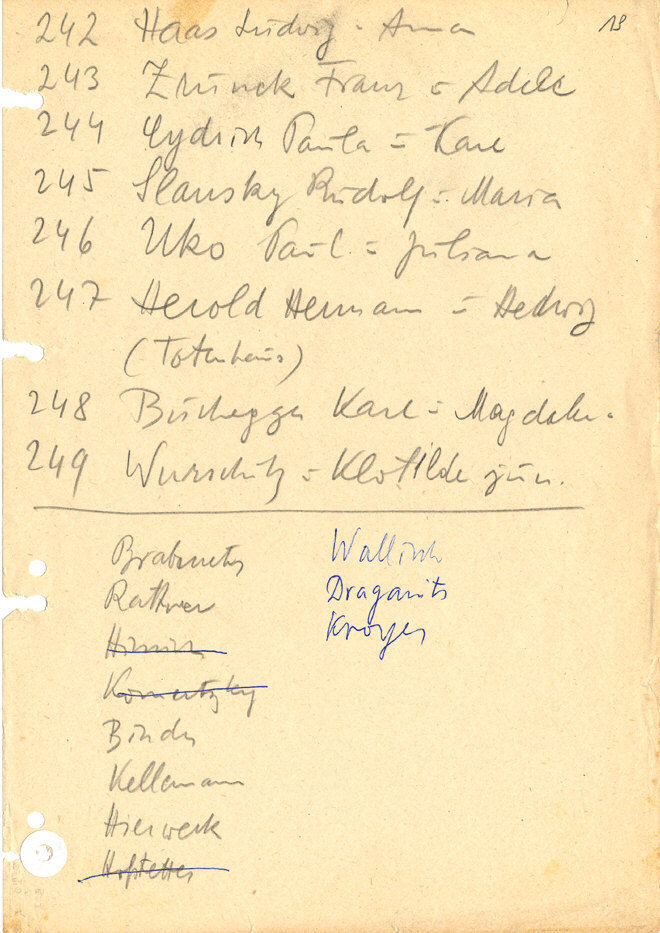 19
242 Haas Ludwig - Anna
243 Franz = Adele
244 Paula = Karl
245 Slansky Rudolf = Maria
246 Uko Paul = Juliana
247 Herold Hermann = Hedwig
(Totenhaus)
248 Buchegger Karl = Magdalen.
249 Wurschitz = Klotilde jun.
Brabenetz Wallisch
Rathner Draganits
Kroyer
Binder
Kellermann
Hierwerk
Hofstetter